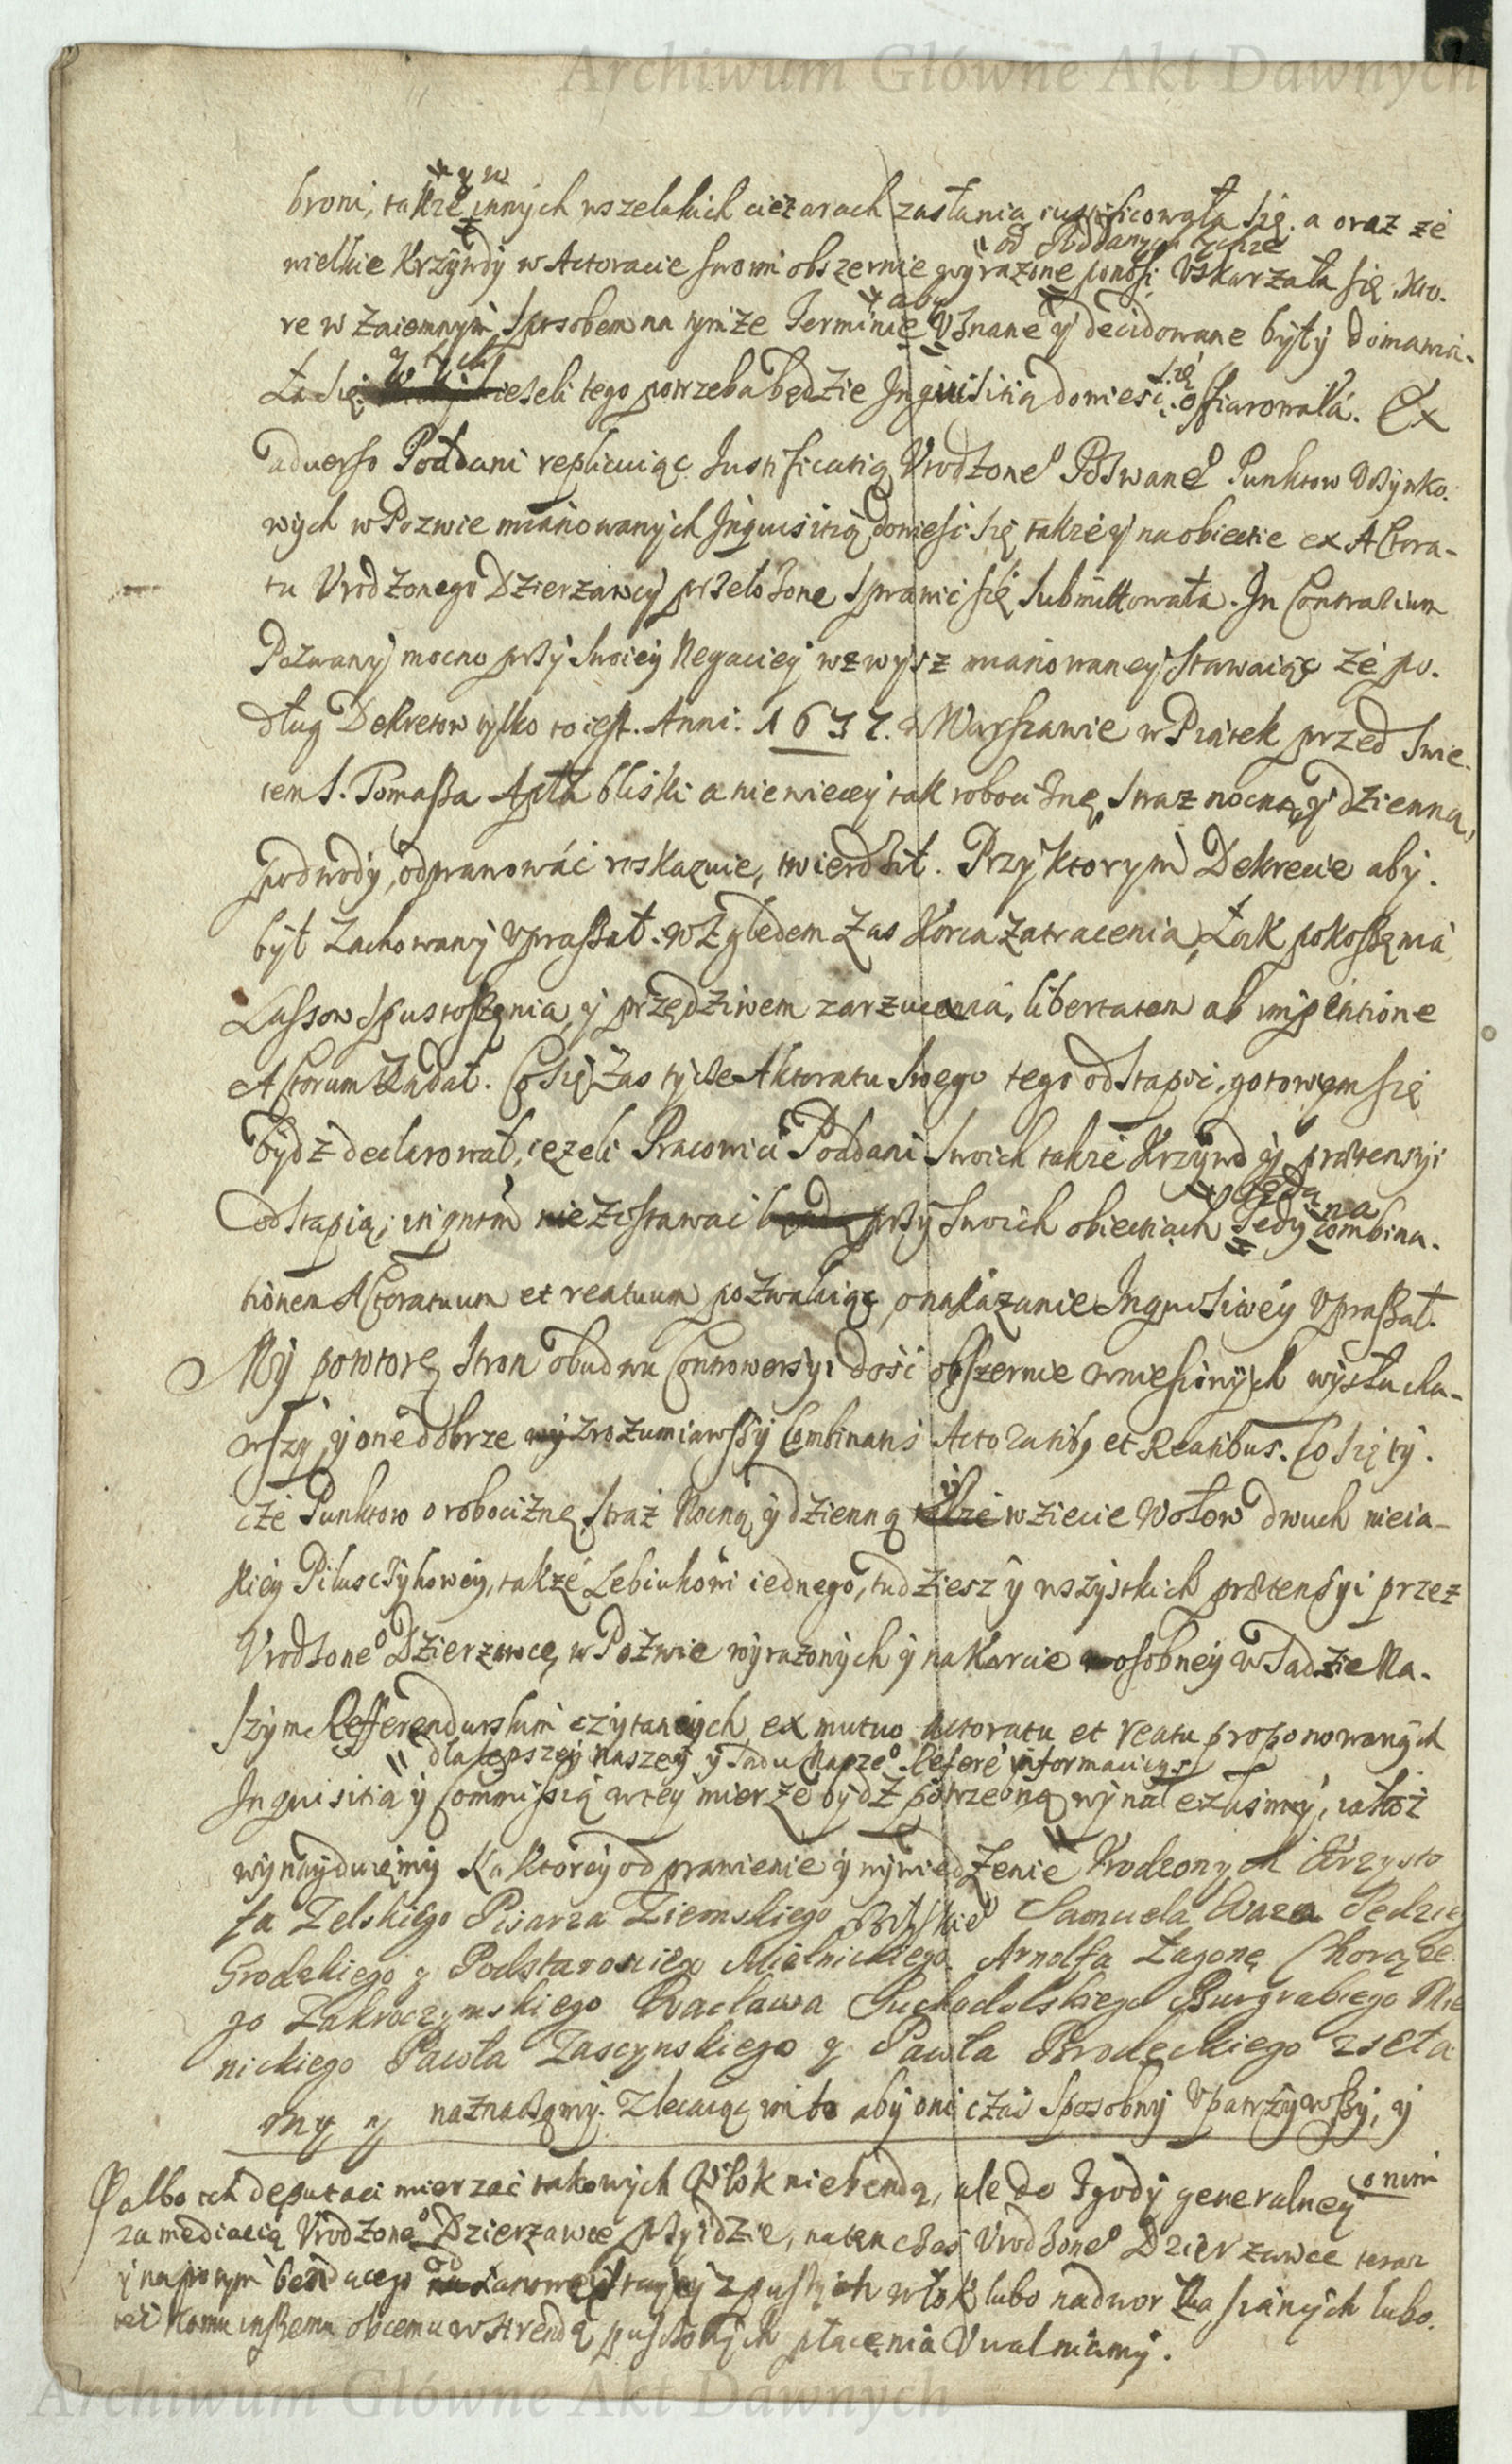 Archiwum Główne Akt Dawnych
y w
broni, takze innych wszelakich cięzarach zastania iustificowała się. a oraz ze
od Poddanych tychze
wielkie Krzywdy w Actoracie swoim obszernie wyrazone ponosi Uskarzała się. kto-
aby
re w zaiemnym sposobem na tymze Terminie Uznane y decidowane były domawia-
y tych
ła się ieseli tego potrzeba będzie Inquisitią doniesc się offiarowała. Ex
aduerso Poddani replicuiąc Iustificatią Urodzoneo Pozwaneo Punktow Uszynko-
wych w Pozwie mianowanych Inquisitią doniesc się takze y na obiectie ex Actora-
tu Urodzonego Dzierzawcy przełozone sprawic się submittowała. In Contrarium
Pozwany mocno przy swoiey Negaciey wzwysz mianowaney stawaiąc ze po-
dług Dekretow tylko to iest. Anni: 1637. w Warszawie w Piątek przed Swie-
tem S. Tomasza Aptła bliski a niewiecey tak robociznę, straz nocną y dzienną,
podwody, odprawowac roskazuie, twierdził. Przy ktorym Dekrecie aby
był zachowany upraszał. Względem zas Korca zatracenia, Łąk pokoszenia
Lassow spustoszenia, y przędziwem zarzucenia, libertatem ab impetitione
Actorum Ządał. Co się zas tycze Aktoratu swego tego odstąpic, gotowym się
bydz declarował, iezeli Pracowici Poddani swoich takze Krzywd y praetensyi
odstąpią; inquantum nie zostawac przy swoich obiectiach
będą
Tedy na Combina-
tionem Actoratuum et reatuum pozwalaiąc, o nakazanie Inquisitiey Upraszał.
My powtorę stron obudwu Controwersyi dosc obszernie wniesionych wysłucha-
wszy, y one dobrze wyzrozumiawszy Combinatis Actoratibus et Reatibus. Co się ty-
cze Punktow o robociznę, straz Nocną y dzienną y wziecie Wołow dwuch nieia-
kiey Piluszczykowey, takze Lebiukowi iednego, tudziesz y wszystkich praetensyi przez
Urodzoneo Dzierzawcę, w Pozwie wyrazonych y na Karcie osobney w Sadzie Na-
szym Refferendarskim czytanych ex mutuo Actoratu et reatu proponowanych
dla lepszey naszey y Sadu Naszeo Refere informaciey
Inquisitią y Commissią w tey mierze bydz potrzebną wynalezlismy, iakoz
wynayduiemy Na ktorey odprawienie y wywiedzenie Urodzonych Krzyszto
fa Zelskiego Pisarza Ziemskiego Samuela Sędzieg
Grodzkiego y Podstarosciego Mielnickiego. Arnolfa Łagonę Chorąze
go Zakroczymskiego Wacława Suchodolskiego Burgrabiego Miel
nickiego Pawła Zascynskiego y Pawła Brodeckiego zsełа
my y naznaczamy. Zlecaiąc im to aby oni czas sposobny Upatrzywszy, y
albo tesz deputaci mierzac takowych Włok niebendą, ale do Zgody generalney o nim
za mediacią Urodzoneo Dzierzawce przyidzie, naten czas Urodzoneo Dzierzawce teraz
y napotym bendącego od z pustych włok lubo na dwor zasianych lubo
tez komu inszemu obcemu w arendę puszczonych płacenia Uwalniamy.
Archiwum Główne Akt Dawnych